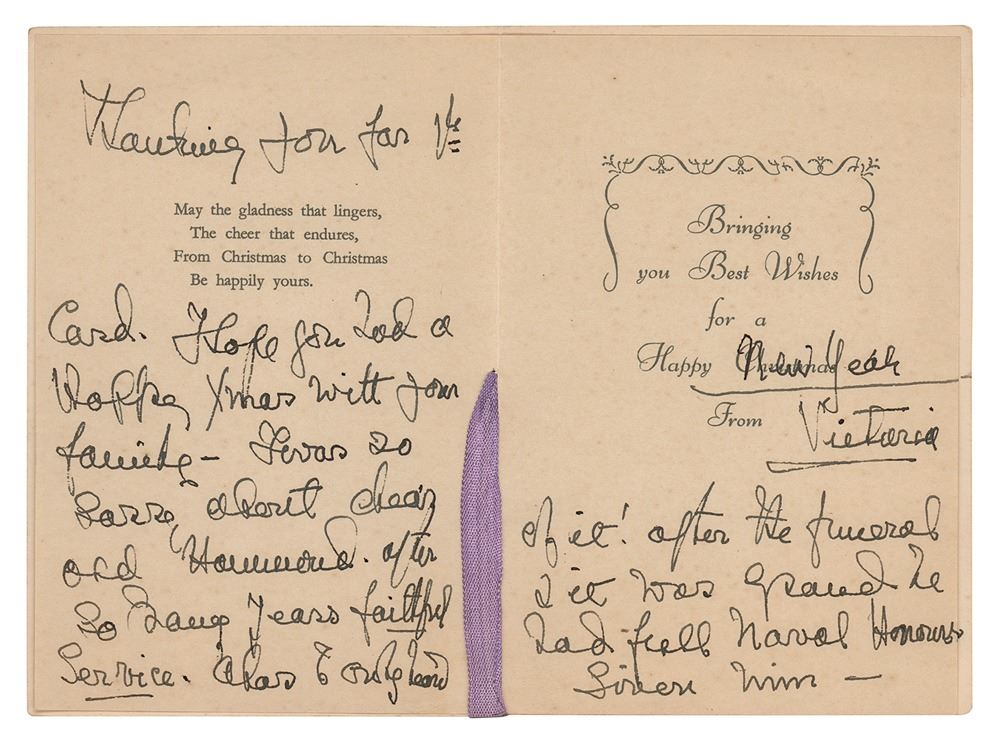 Thanking you for the
May the gladness that lingers,
The cheer that endures,
From Christmas to Christmas
Be happily yours.
Card. Hope you had a
Happy Xmas with your
family – I was so
Sorry about dear
old Hammond. after
So many years faithful
Service. Alas I only heard
Bringing
you Best Wishes
for a
Happy New Year
From Victoria
of it! after the funeral
& it was grand he
had full Naval Honours
Given him —